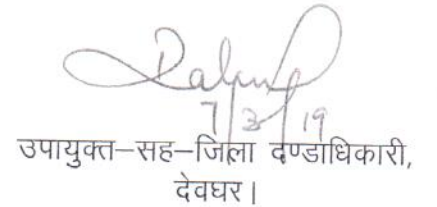 7/3/19
उपायुक्त–सह–जिला दण्डाधिकारी,
देवघर।